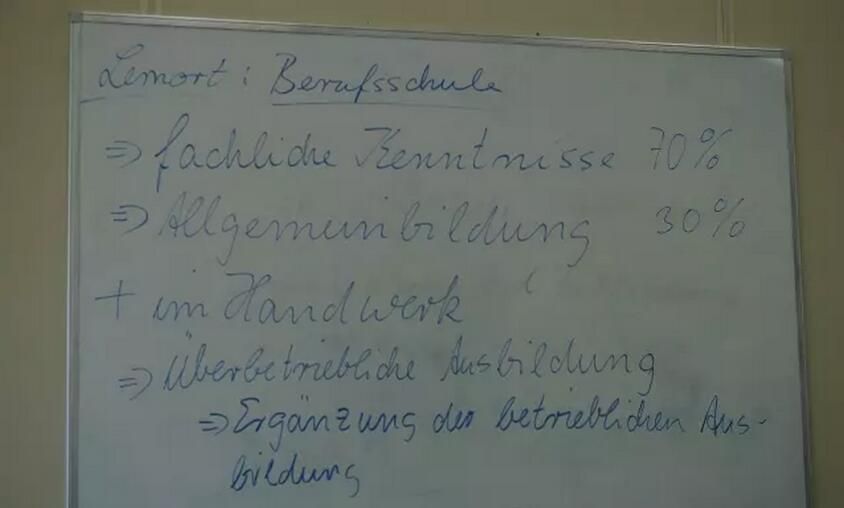 Lernort: Berufsschule
⇒ fachliche Kenntnisse 70%
⇒ Allgemeinbildung 30%
+ im Handwerk
⇒ Überbetriebliche Ausbildung
⇒ Ergänzung der betrieblichen Aus-
bildung